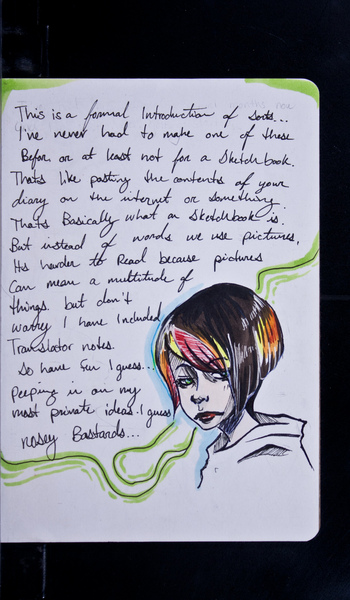 This is a formal Introduction of sorts...
I've never had to make one of these
Before or at least not for a Sketchbook.
Thats like posting the contents of your
diary on the internet or something.
Thats Basically what a Sketchbook is.
But instead of words we use pictures,
Its harder to Read because pictures
Can mean a multitude of
things. but don't
worrey I have Included
Translator notes.
So have fun I guess...
Peeping in on my
most private ideas. I guess
nosey Bastards...